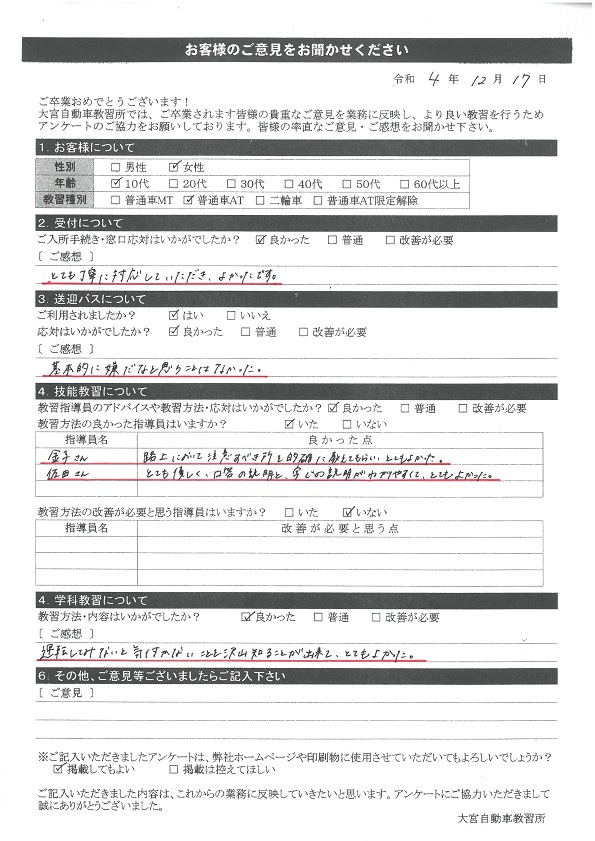 お客様のご意見をお聞かせください
令和 4 年 12 月 17 日
ご卒業おめでとうございます！
大宮自動車教習所では、ご卒業されます皆様の貴重なご意見を業務に反映し、より良い教習を行うため
アンケートのご協力をお願いしております。皆様の率直なご意見・ご感想をお聞かせ下さい。
1. お客様について
性別 □ 男性 ☑ 女性
年齢 ☑ 10代 □ 20代 □ 30代 □ 40代 □ 50代 □ 60代以上
教習種別 □ 普通車MT ☑ 普通車AT □ 二輪車 □ 普通車AT限定解除
2. 受付について
ご入所手続き・窓口応対はいかがでしたか？ ☑ 良かった □ 普通 □ 改善が必要
［ ご感想 ］
とても丁寧に対応していただき、よかったです。
3. 送迎バスについて
ご利用されましたか？ ☑ はい □ いいえ
応対はいかがでしたか？ ☑ 良かった □ 普通 □ 改善が必要
［ ご感想 ］
基本的に嫌だなと思うことはなかった。
4. 技能教習について
教習指導員のアドバイスや教習方法・応対はいかがでしたか？ ☑ 良かった □ 普通 □ 改善が必要
教習方法の良かった指導員はいますか？ ☑ いた □ いない
指導員名 良かった点
金子さん 路上において注意すべき所を的確に教えてもらい、とてもよかった。
佐田さん とても優しく、口答の説明と、字での説明がわかりやすくて、とてもよかった。
教習方法の改善が必要と思う指導員はいますか？ □ いた ☑ いない
指導員名 改善が必要と思う点
4. 学科教習について
教習方法・内容はいかがでしたか？ ☑ 良かった □ 普通 □ 改善が必要
［ ご感想 ］
運転してみないと気付かないことを沢山知ることが出来て、とてもよかった。
6. その他、ご意見等ございましたらご記入下さい
［ ご意見 ］
※ご記入いただきましたアンケートは、弊社ホームページや印刷物に使用させていただいてもよろしいでしょうか？
☑ 掲載してもよい □ 掲載は控えてほしい
ご記入いただきました内容は、これからの業務に反映していきたいと思います。アンケートにご協力いただきまして
誠にありがとうございました。
大宮自動車教習所